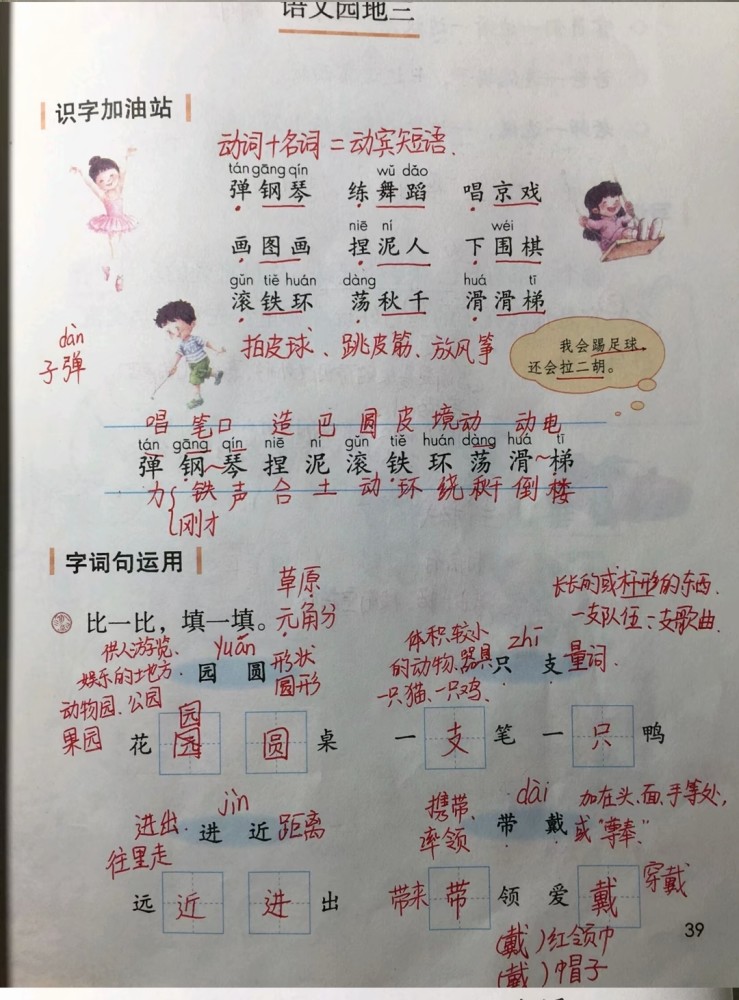 语文园地三
识字加油站
动词+名词=动宾短语.
tán gāng qín wǔ dǎo
弹钢琴 练舞蹈 唱京戏
niē ní wéi
画图画 捏泥人 下围棋
gǔn tiě huán dàng huá tī
滚铁环 荡秋千 滑滑梯
拍皮球、跳皮筋、放风筝
我会踢足球,
还会拉二胡。
dàn
子弹
唱 笔口 造 巴 圆 皮 境动 动电
tán gāng qín niē ní gǔn tiě huán dàng huá tī
弹 钢~琴 捏 泥 滚 铁 环 荡 滑~梯
力 铁 声 合 土 动 环 绕 秋千 倒 楼
刚才
字词句运用
草原.
比一比,填一填。元角分
长长的或杆形的东西.
一支队伍:支歌曲.
供人游览、
娱乐的土地方.
动物园、公园
果园
yuán
园 圆 形状
圆形
体积较小
的动物、器具
一只猫、一只鸡.
zhī
只 支 量词.
园
花 园 圆 桌
一 支 笔 一 只 鸭
jìn
进出. 进 近 距离
往里走
携带、
率领
dài
带 戴
加在头、面、手等处,
或“尊奉”.
远 近 进 出
带来 带 领 爱 戴 穿戴
(戴)红领巾
(戴)帽子
39